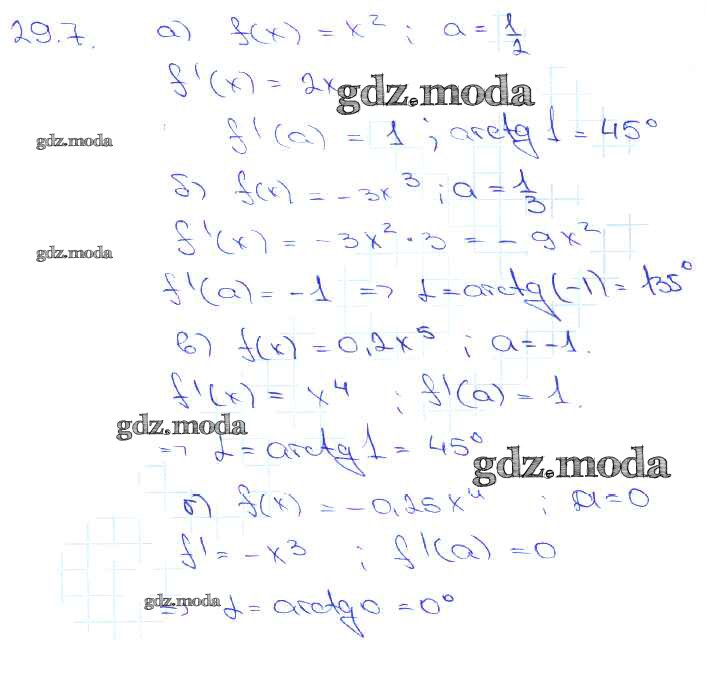 29.7. а) f(x) = x² ; a = 1/2
f'(x) = 2x
gdz.moda
f'(a) = 1 ; arctg 1 = 45°
gdz.moda
б) f(x) = -3x³ ; a = 1/3
f'(x) = -3x² · 3 = -9x²
gdz.moda
f'(a) = -1 => α = arctg(-1) = 135°
в) f(x) = 0,2x⁵ ; a = -1.
f'(x) = x⁴ ; f'(a) = 1.
gdz.moda
=> α = arctg 1 = 45°
gdz.moda
г) f(x) = -0,25x⁴ ; a = 0
f' = -x³ ; f'(a) = 0
gdz.moda
=> α = arctg 0 = 0°